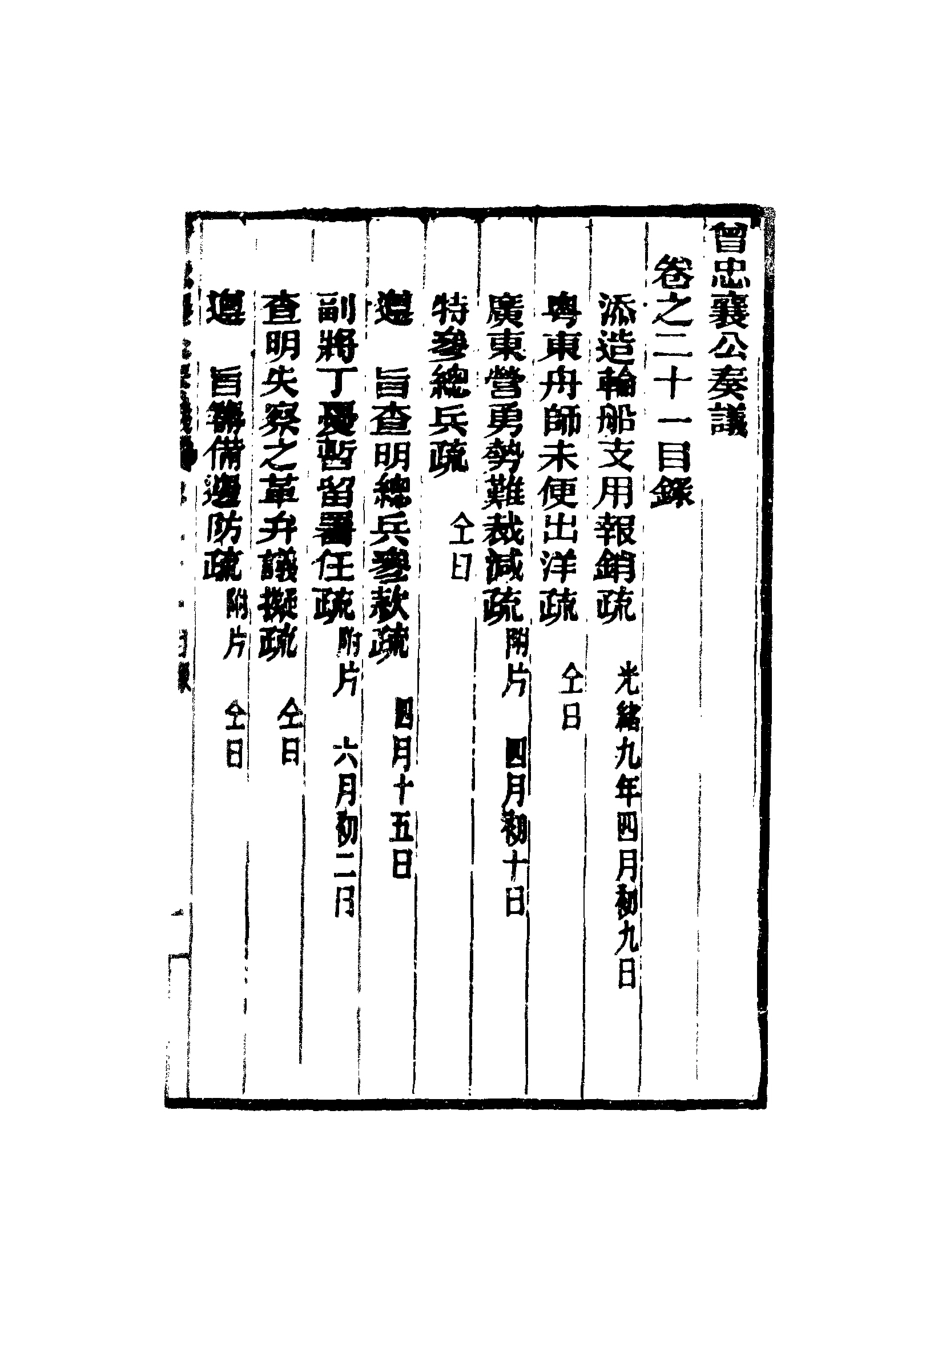 曾忠襄公奏議
卷之二十一目錄
添造輪船支用報銷疏 光緒九年四月初九日
粤東舟師未便出洋疏 仝日
廣東營勇勢難裁減疏 附片 四月初十日
特參總兵疏 仝日
遵 旨查明總兵參款疏 四月十五日
副將丁憂暫留署任疏 附片 六月初二日
查明失察之革弁議擬疏 仝日
遵 旨籌備邊防疏 附片 仝日